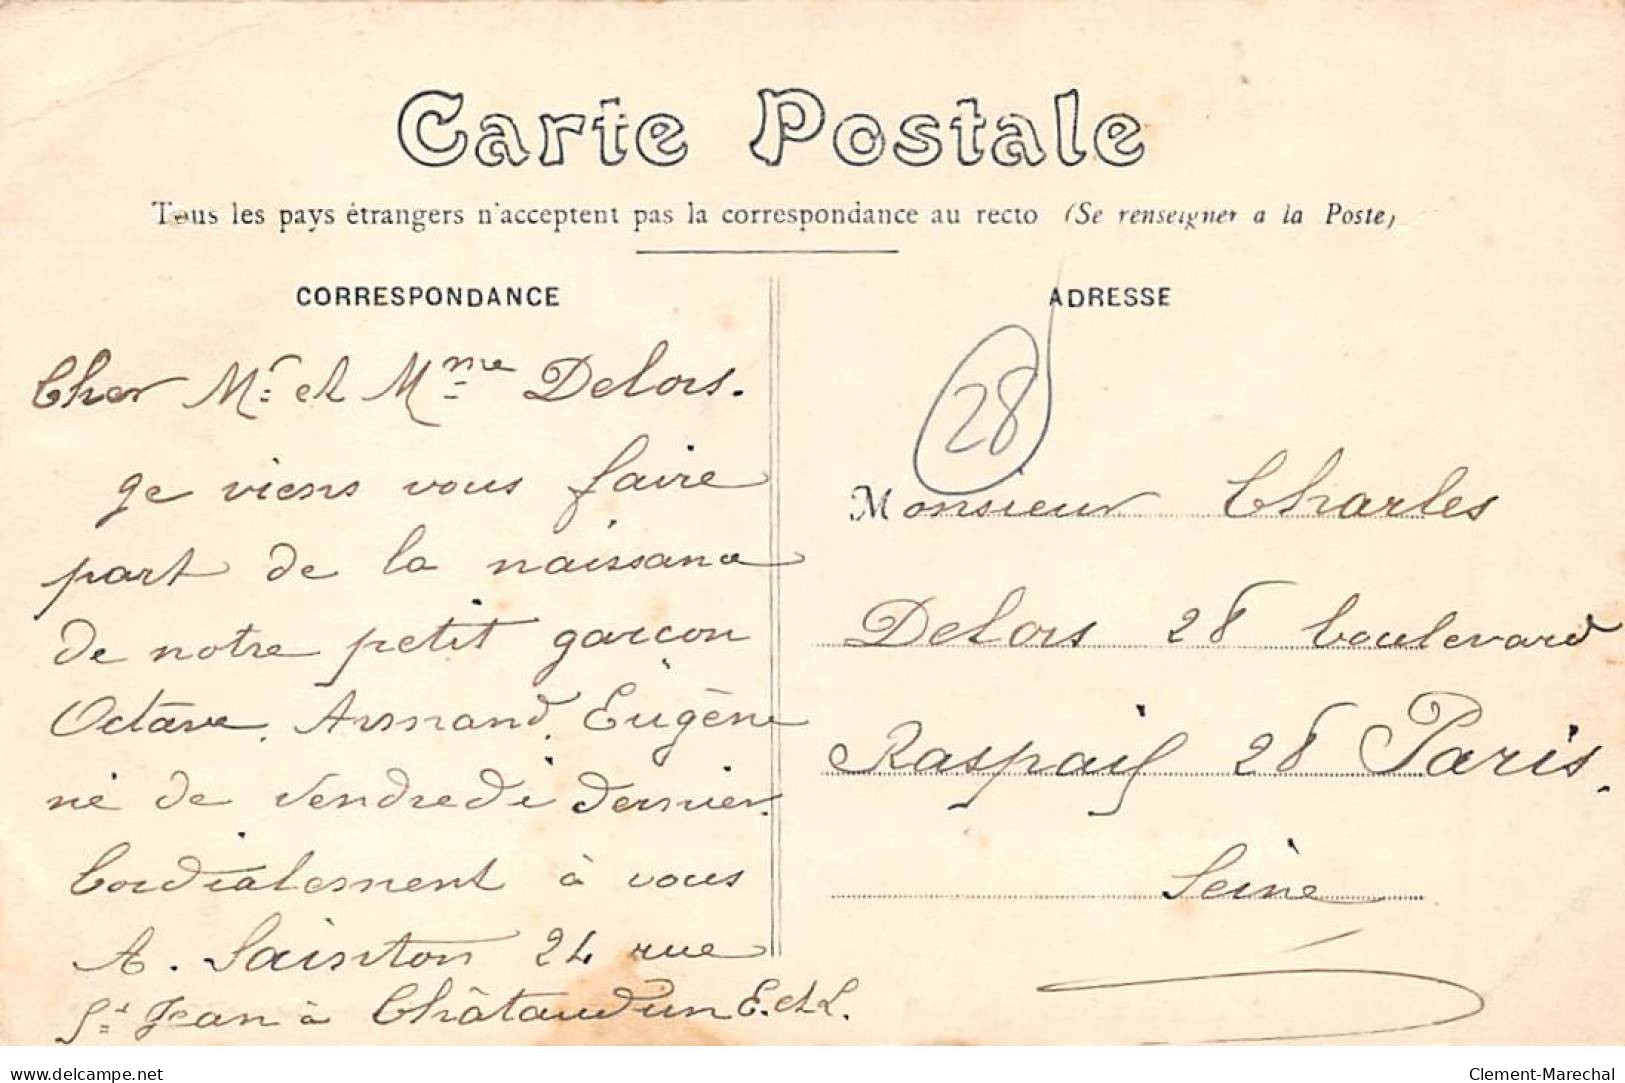 Carte Postale
Tous les pays étrangers n'acceptent pas la correspondance au recto (Se renseigner a la Poste)
CORRESPONDANCE
Cher Mr. et Mme Delors.
ge viens vous faire
part de la naissance
de notre petit garcon
Octave, Armand, Eugène
né de vendredi dernier.
Cordialement à vous
A. Sainton 24 rue
St Jean à Châtaudun E. et L.
ADRESSE
28
Monsieur Charles
Delors 28 boulevard
Raspail 28 Paris.
Seine
www.delcampe.net
Clement-Marechal